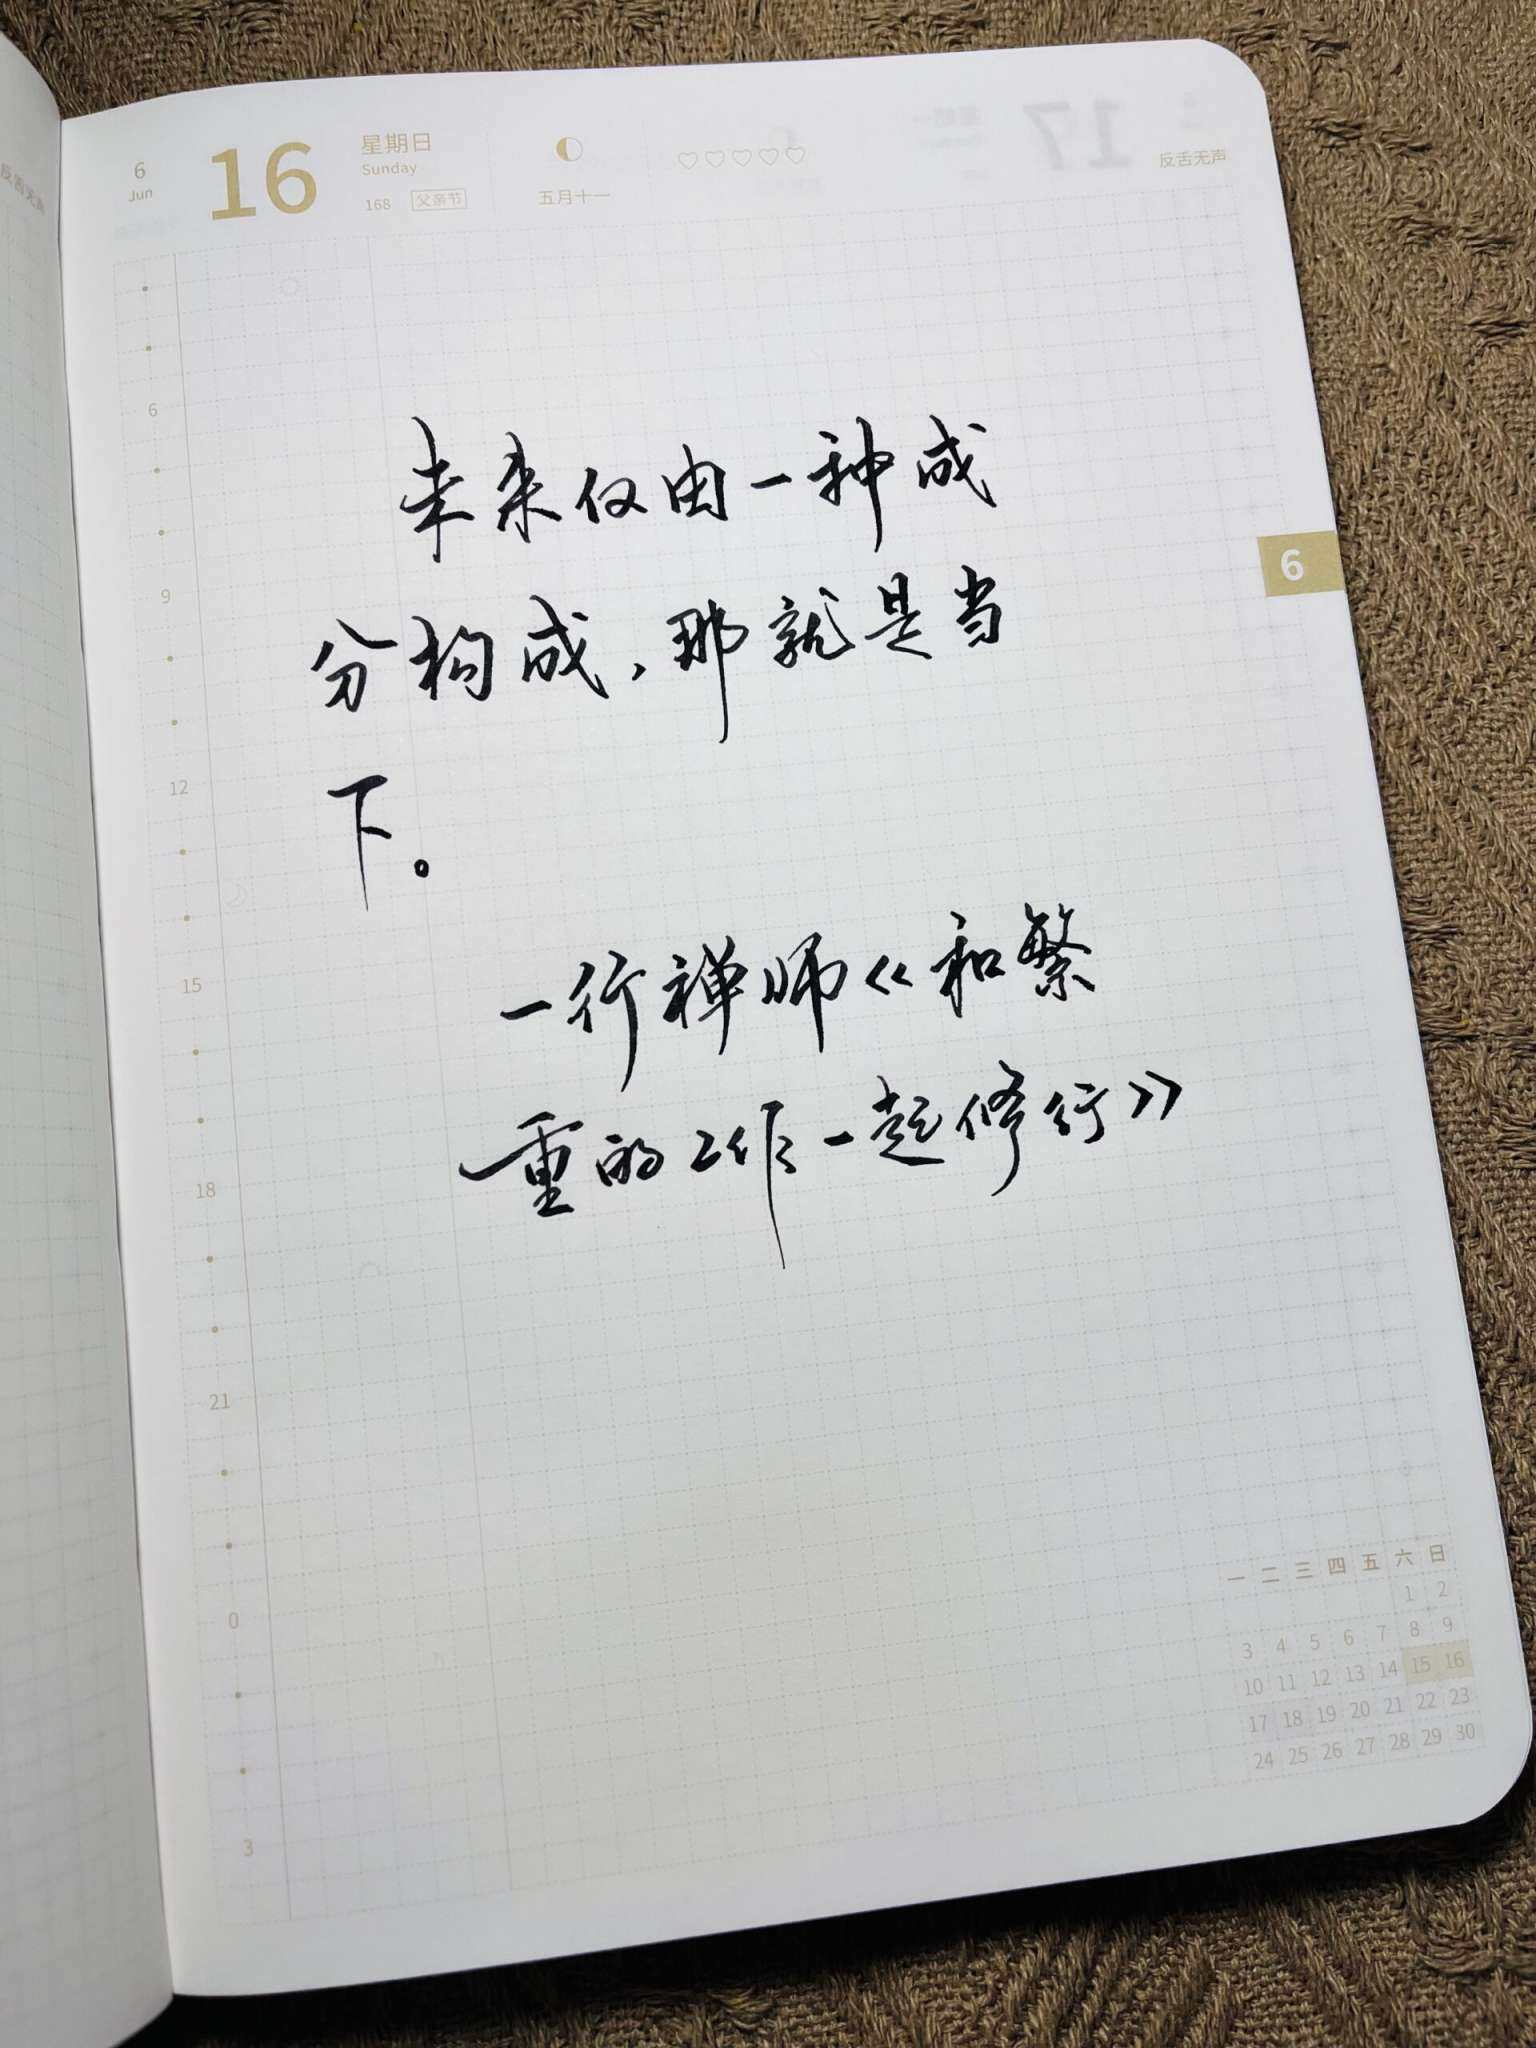 6
Jun
16
星期日
Sunday
168 父亲节
五月十一
17
反舌无声
反舌无声
6
9
12
15
18
21
0
3
未来仅由一种成
分构成,那就是当
下。
一行禅师《和繁
重的工作一起修行》
6
一 二 三 四 五 六 日
1 2
3 4 5 6 7 8 9
10 11 12 13 14 15 16
17 18 19 20 21 22 23
24 25 26 27 28 29 30